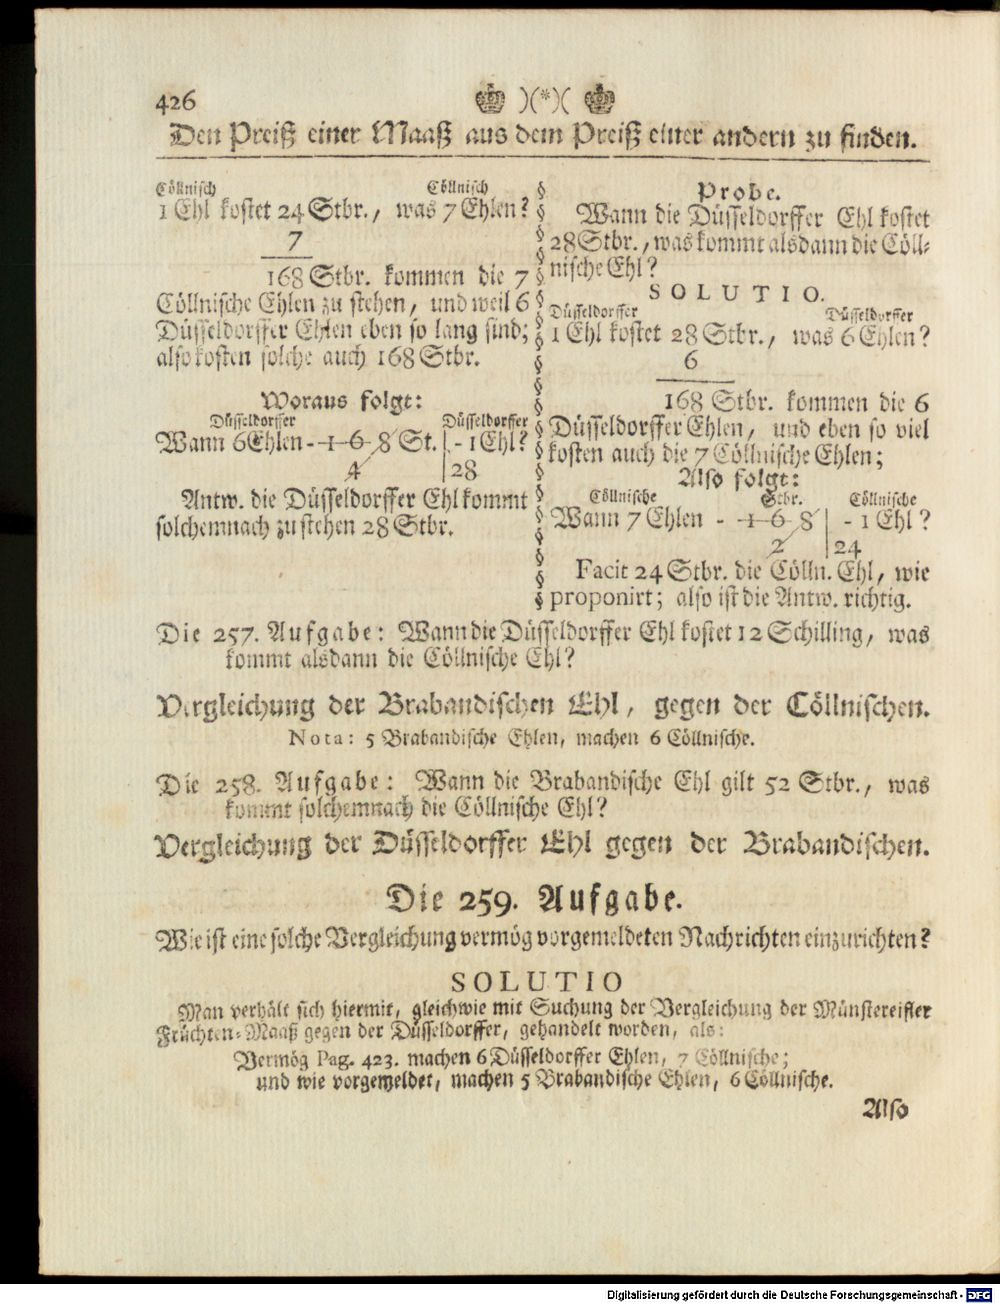 426 )(*)(
Den Preiß einer Maaß aus dem Preiß einer andern zu finden.
Cöllnisch Cöllnisch
1 Ehl kostet 24 Stbr., was 7 Ehlen?
7
168 Stbr. kommen die 7
Cöllnische Ehlen zu stehen, und weil 6
Düsseldorffer Ehlen eben so lang sind;
also kosten solche auch 168 Stbr.
Woraus folgt:
Düsseldorffer Düsseldorffer
Wann 6 Ehlen - - 1 6 8 St. | - 1 Ehl?
4 | 28
Antw. die Düsseldorffer Ehl kommt
solchemnach zu stehen 28 Stbr.
Probe.
Wann die Düsseldorffer Ehl kostet
28 Stbr., was kommt alsdann die Cöll-
nische Ehl?
SOLUTIO.
Düsseldorffer Düsseldorffer
1 Ehl kostet 28 Stbr., was 6 Ehlen?
6
168 Stbr. kommen die 6
Düsseldorffer Ehlen, und eben so viel
kosten auch die 7 Cöllnische Ehlen;
Also folgt:
Cöllnische Stbr. Cöllnische
Wann 7 Ehlen - 1 6 8 | - 1 Ehl?
2 | 24
Facit 24 Stbr. die Cölln. Ehl, wie
proponirt; also ist die Antw. richtig.
Die 257. Aufgabe: Wann die Düsseldorffer Ehl kostet 12 Schilling, was
kommt alsdann die Cöllnische Ehl?
Vergleichung der Brabandischen Ehl, gegen der Cöllnischen.
Nota: 5 Brabandische Ehlen, machen 6 Cöllnische.
Die 258. Aufgabe: Wann die Brabandische Ehl gilt 52 Stbr., was
kommt solchemnach die Cöllnische Ehl?
Vergleichung der Düsseldorffer Ehl gegen der Brabandischen.
Die 259. Aufgabe.
Wie ist eine solche Vergleichung vermög vorgemeldeten Nachrichten einzurichten?
SOLUTIO
Man verhält sich hiermit, gleichwie mit Suchung der Vergleichung der Münstereifler
Früchten-Maaß gegen der Düsseldorffer, gehandelt worden, als:
Vermög Pag. 423. machen 6 Düsseldorffer Ehlen, 7 Cöllnische;
und wie vorgemeldet, machen 5 Brabandische Ehlen, 6 Cöllnische.
Also
Digitalisierung gefördert durch die Deutsche Forschungsgemeinschaft - DFG